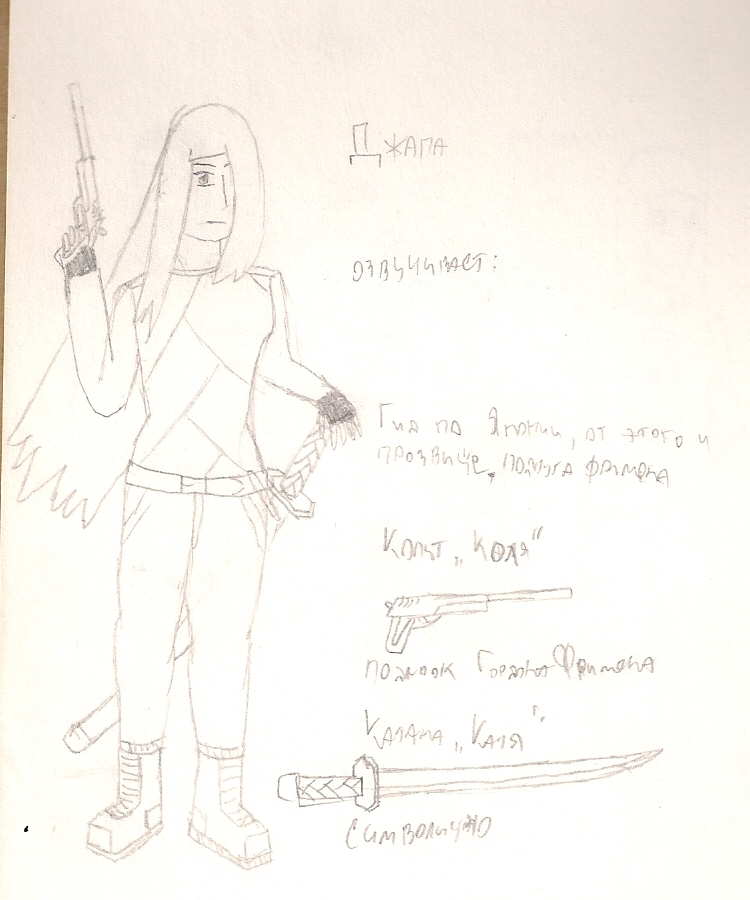 Джапа
озвучивает:
Гид по Японии, от этого и
прозвище, подруга Фримена
Кольт „Коля“
подарок Гордона Фримена
Катана „Катя“.
Символично